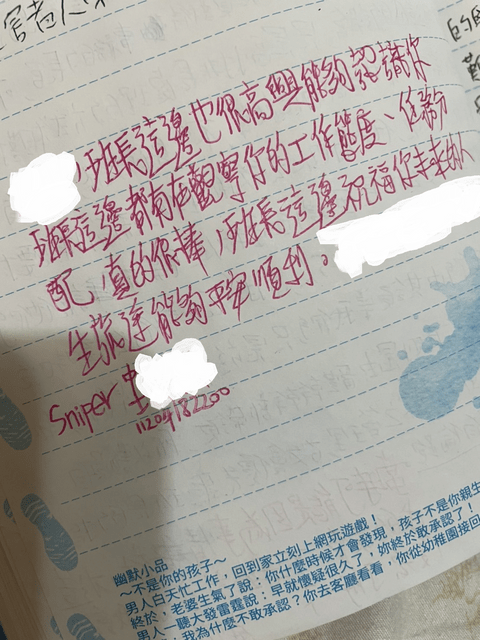 ,班長這邊也很高興能夠認識你
班長這邊都有在觀察你的工作態度、
配,真的很棒,班長這邊祝福你未來的人
生旅途能夠平安順利。
Sniper
11204182200
幽默小品
~不是你的孩子~
男人白天忙工作,回到家立刻上網玩遊戲!
終於,老婆生氣了說:你什麼時候才會發現,孩子不是你親生
男人一聽大發雷霆說:早就懷疑很久了,妳終於敢承認了!
我為什麼不敢承認?你去客廳看看,你從幼稚園接回